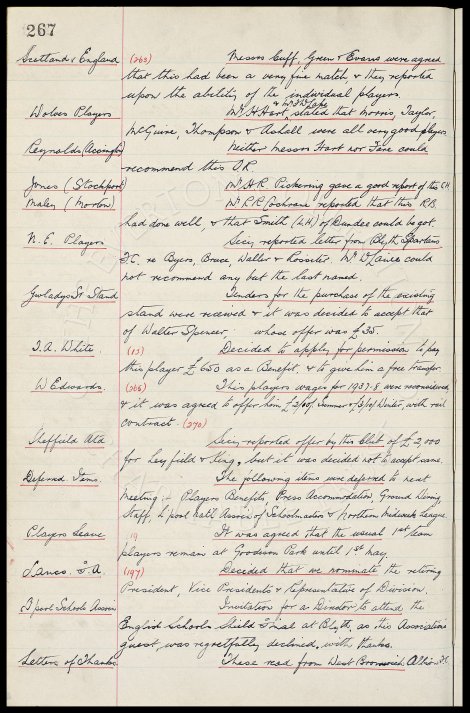 267
Scotland v England (263) Messrs Cuff, Green & Evans were agreed
that this had been a very fine match & they reported
upon the ability of the individual players.
& Mr
Wolves Players Mr H. Hart, stated that Morris, Taylor,
McGuire, Thompson & Ashall were all very good players
Reynolds (Accrington) Neither Messrs Hart nor could
recommend this O.R.
Jones (Stockport) Mr H.R. Pickering gave a good report of this C.H.
Maley (Morton) Mr R.R. Cochrane reported that this R.B.
had done well, & that Smith (L.H.) of Dundee could be got.
N.E. Players Secy reported letter from Blyth Spartans
F.C. re Byers, Bruce, Waller & Rossiter. Mr could
not recommend any but the last named.
Gwladys St Stand Tenders for the purchase of the existing
stand were received & it was decided to accept that
of Walter Spencer. whose offer was £35.
T.A. White. (15) Decided to apply for permission to pay
this player £650 as a Benefit, & to give him a free transfer.
W Edwards. (266) This players wages for 1937-8 were reconsidered
& it was agreed to offer him £2/10/, Summer & £3/10/ Winter, with rail
contract. (270)
Sheffield Utd Secy reported offer by this Club of £2,000
for Leyfield & King, but it was decided not to accept same.
Deferred Items. The following items were deferred to next
meeting:- Players Benefits, Press Accommodation, Ground Living
Staff, L'pool Catl Assocn of Schoolmasters & Northern Midweek League.
Players Leave 19 It was agreed that the usual 1st team
players remain at Goodison Park until 1st May.
Lancs. F.A. (197) Decided that we nominate the retiring
President, Vice Presidents & Representative of Division.
L'pool Schools Assocn Invitation for a Director to attend the
English Schools Shield Final at Blyth, as this Associations
guest, was regretfully declined, with thanks.
Letters of Thanks. These read from West Bromwich Albion F.C.